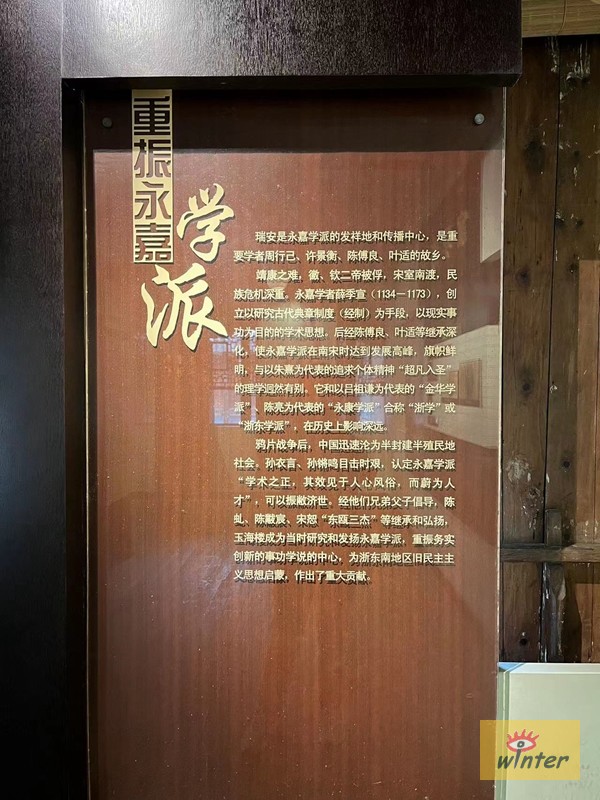 重振永嘉
学派
瑞安是永嘉学派的发祥地和传播中心，是重
要学者周行己、许景衡、陈傅良、叶适的故乡。
靖康之难，徽、钦二帝被俘，宋室南渡，民
族危机深重。永嘉学者薛季宣（1134—1173），创
立以研究古代典章制度（经制）为手段，以现实事
功为目的的学术思想。后经陈傅良、叶适等继承深
化，使永嘉学派在南宋时达到发展高峰，旗帜鲜
明，与以朱熹为代表的追求个体精神“超凡入圣”
的理学迥然有别。它和以吕祖谦为代表的“金华学
派”、陈亮为代表的“永康学派”合称“浙学”或
“浙东学派”，在历史上影响深远。
鸦片战争后，中国迅速沦为半封建半殖民地
社会。孙衣言、孙锵鸣目击时艰，认定永嘉学派
“学术之正，其效见于人心风俗，而蔚为人
才”，可以振敝济世。经他们兄弟父子倡导，陈
虬、陈黻宸、宋恕“东瓯三杰”等继承和弘扬，
玉海楼成为当时研究和发扬永嘉学派，重振务实
创新的事功学说的中心，为浙东南地区旧民主主
义思想启蒙，作出了重大贡献。
winter